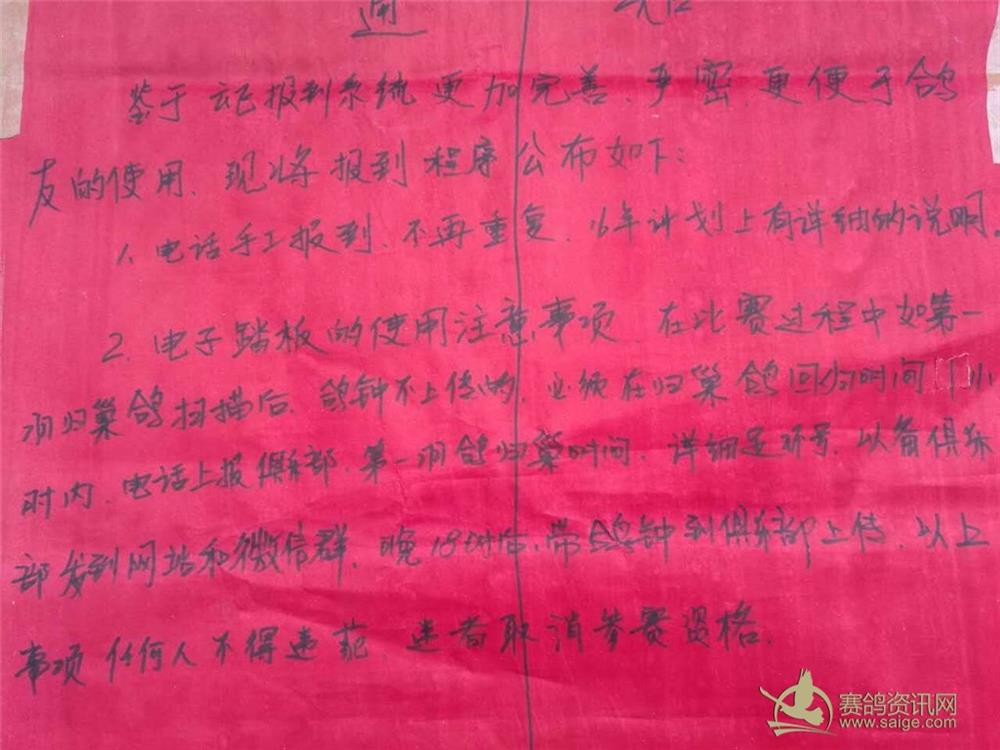 通
鉴于记报到系统更加完善、严密、更便于鸽
友的使用、现将报到程序公布如下:
1、电话手工报到、不再重复、16年计划上有详细的说明。
2、电子踏板的使用注意事项、在比赛过程中如第一
羽归巢鸽扫描后、鸽钟不上传的、必须在归巢鸽回归时间1小
时内、电话上报俱乐部、第一羽鸽归巢时间、详细足环号、以备俱乐
部发到网站和微信群、晚18时后、带鸽钟到俱乐部上传、以上
事项任何人不得违范、违者取消参赛资格.
赛鸽资讯网
www.saige.com